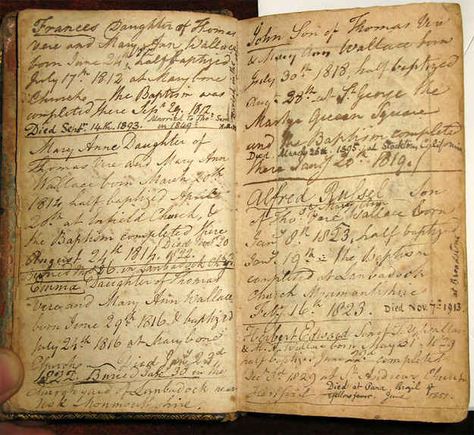 Frances Daughter of Thomas
Vere and Mary Ann Wallace
born June 24th half baptized
July 17th 1812 at Marybone
Church the Baptism was
completed there Septr 29. 1812.
Died Septr. 14th. 1893. Married to Thos. Sims
in 1849
Mary Anne Daughter of
Thomas Vere and Mary Ann
Wallace born March
1814 half baptized April
at Enfield Church, &
the Baptism completed there
August 24th 1814.
Emma Daughter of Thomas
Vere and Mary Ann Wallace
born June 29th 1816 & baptized
July 24th 1816 at Marybone
Church
Buried in the
Church Yard of Lanbadock near
Usk Monmouthshire.
John Son of Thomas Vere
& Mary Ann Wallace born
July 30th 1818, half baptized
Augt 28th at St. George the
Martyr Queen Square
and the Baptism completed
there Jany 20th 1819.
Died March 1895, at Stockton, California
Alfred Russel Son
of Thos. Vere & Mary Ann Wallace born
Jany 8th 1823, half baptized
Jany 19th & the Baptism
completed at Lanbadock
Church Monmouthshire
Feby 16th 1823. Died Nov. 7th 1913
at Broadstone
Herbert Edward Son of T. V. Wallace
& Wallace born 1829
half completed
Decr 1829 at St. Andrew's Church
Hertford. Died at Para Brazil of
Yellow fever June 1851.